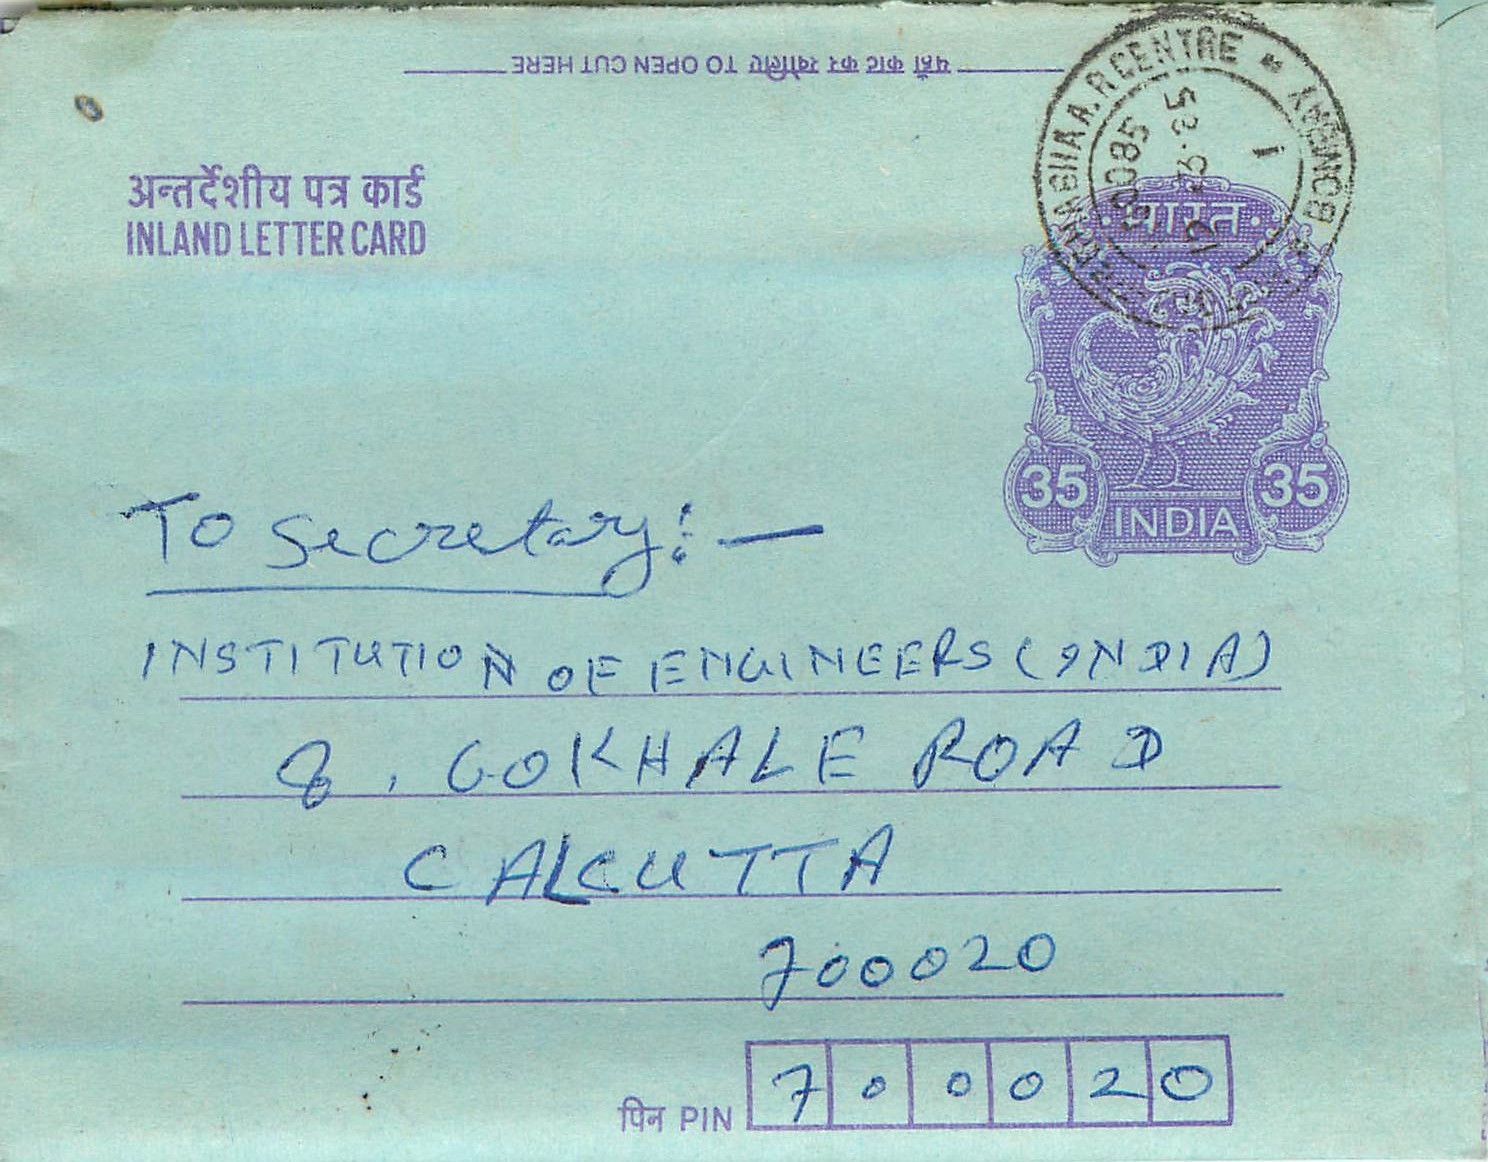 यहाँ काट कर खोलिए TO OPEN CUT HERE
A.R CENTRE
BOMBAY
85
अन्तर्देशीय पत्र कार्ड
INLAND LETTER CARD
भारत
35 35
INDIA
To Secretary:—
INSTITUTION OF ENGINEERS (INDIA)
8, GOKHALE ROAD
CALCUTTA
700020
पिन PIN 700020